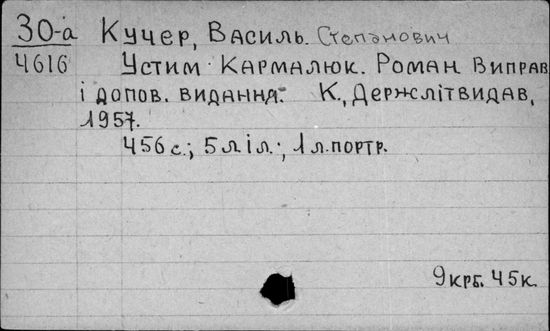 30-а Кучер, Василь. Степанович
4616 Устим Кармалюк. Роман. Виправ.
і допов. видання. К., Держлітвидав,
1957.
456 с.; 5 л іл.; 1 л. портр.
9 крб. 45 к.